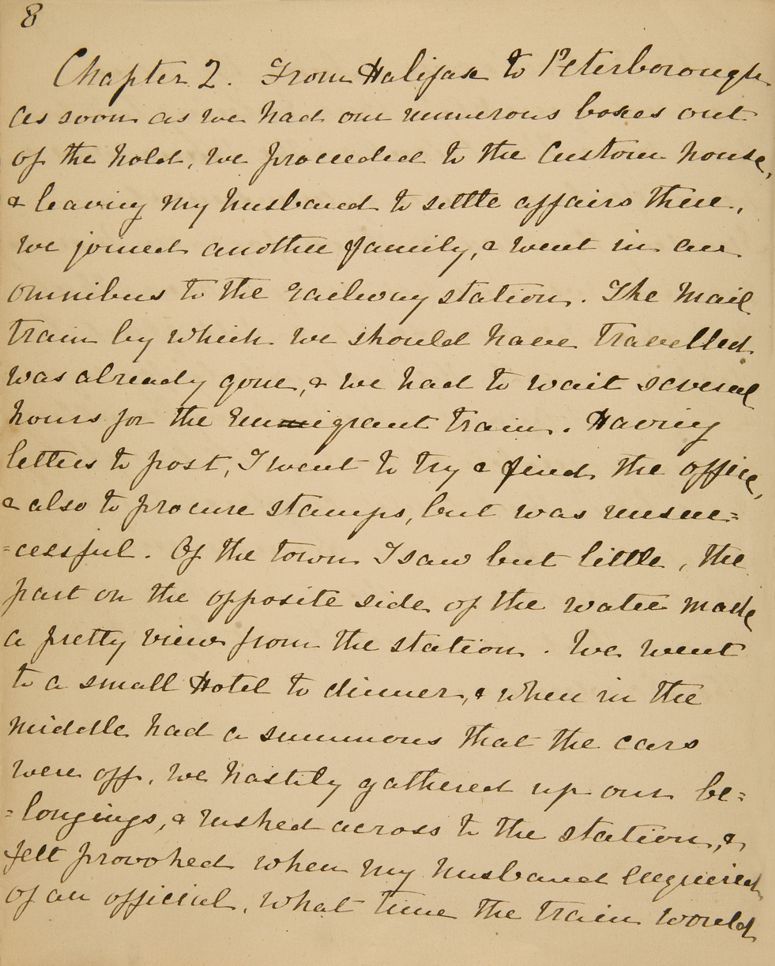 8
Chapter 2. From Halifax to Peterborough
as soon as we had our numerous boxes out
of the hold, we proceeded to the Custom house,
& leaving my husband to settle affairs there,
we joined another family, & went in an
omnibus to the railway station. The Mail
train by which we should have travelled
was already gone, & we had to wait several
hours for the Emigrant train. Having
letters to post, I went to try & find the office,
& also to procure stamps, but was unsuc=
=cessful. Of the town I saw but little, the
part on the opposite side of the water made
a pretty view from the station. We went
to a small Hotel to dinner, & when in the
middle had a summons that the cars
were off. We hastily gathered up our be=
=longings, & rushed across to the station, &
felt provoked when my husband enquired
of an official, what time the train would